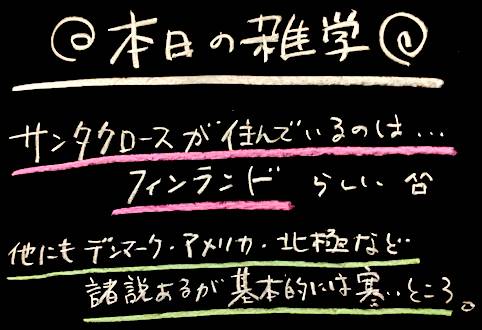 本日の雑学
サンタクロースが住んでいるのは…
フィンランドらしい
他にもデンマーク・アメリカ・北極など…
諸説あるが基本的には寒いところ。